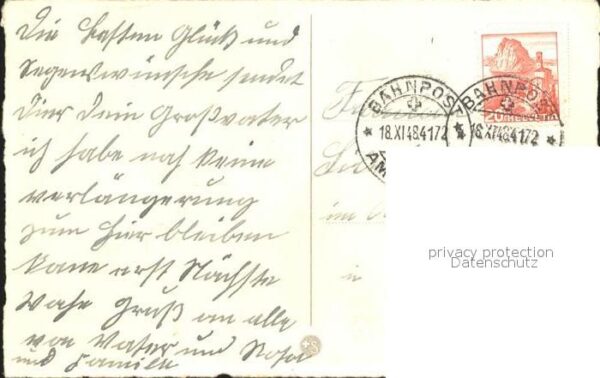 Die besten Glück und
Segenswünsche sendet
Dier dein Großvater
ich habe noch keine
verlängerung
zum hier bleiben
kane erst Nächste
Wohe Gruß an alle
von Vater und Rosa
und Familie
BAHNPOST
18.XI48.4172
AM
BAHNPOST
18.XI48.4172
20 HELVETIA
in
privacy protection
Datenschutz